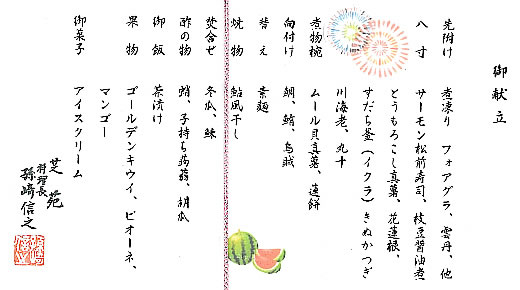 御献立
先附け　煮凍り　フォアグラ、雲丹、他
八寸　サーモン松前寿司、枝豆醤油煮
とうもろこし真薯、花蓮根、
すだち釜(イクラ)きぬかつぎ
川海老、丸十
煮物椀　ムール貝真薯、蓮餅
向付け　鯛、鮪、烏賊
替え　素麺
焼物　鮎風干し
焚合せ　冬瓜、鰊
酢の物　蛸、子持ち蒟蒻、胡瓜
御飯　茶漬け
果物　ゴールデンキウイ、ピオーネ、
マンゴー
御菓子　アイスクリーム
芝苑
料理長
孫崎信之